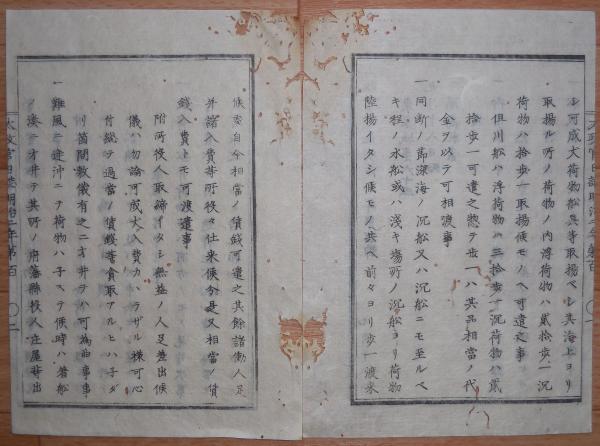 シ可成丈荷物船具等取揚ベシ其海上ヨリ
取揚ル所ノ荷物ノ内浮荷物ハ貳拾歩一沉
荷物ハ拾歩一取揚候モノヘ可遣之事
但川船ハ浮荷物ハ三拾歩一沉荷物ハ貳
拾歩一可遣之惣テ歩一ハ其品相當ノ代
金ヲ以テ可相渡事
一同断ノ節深海ノ沉船又ハ沉船ニモ至ルベ
キ程ノ水船或ハ浅キ場所ノ沉船ヨリ荷物
陸揚イタシ候モノヘ共ヘ前々ヨリ歩一渡来
候処自今相當ノ賃銭可遣之其餘諸働人足
并諸入費等所役々仕来候分是又相當ノ賃
銭入費トモ可渡遣事
附所役人取締イタシ無益ノ人足差出候
儀ハ勿論可成丈入費カヽラザル様可心
付総テ過當ノ賃銭等貪取アルヒハ子ダ
リ箇間敷儀有之ニ才井テハ可為曲事事
一難風ニ逢沖ニテ荷物ハ子ステ候時ハ着船
ノ湊ニ才井テ其所ノ府藩縣役人庄屋等出
太政官日誌明治二年第百